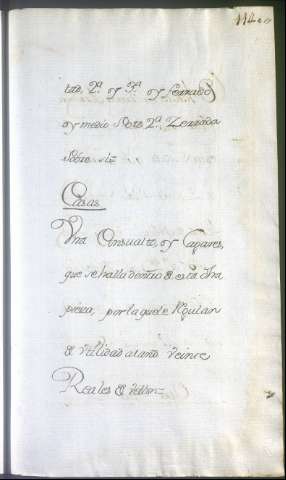 tad, 2ª y 3ª y Ferrado
y medio de 2ª, Zerrada
sobre si=
Casas
Una Consualto, y Capares,
que se halla dentro de esta dha
pieza, por la que le Rgulan
de utilidad al año veinte
Reales de vellon=